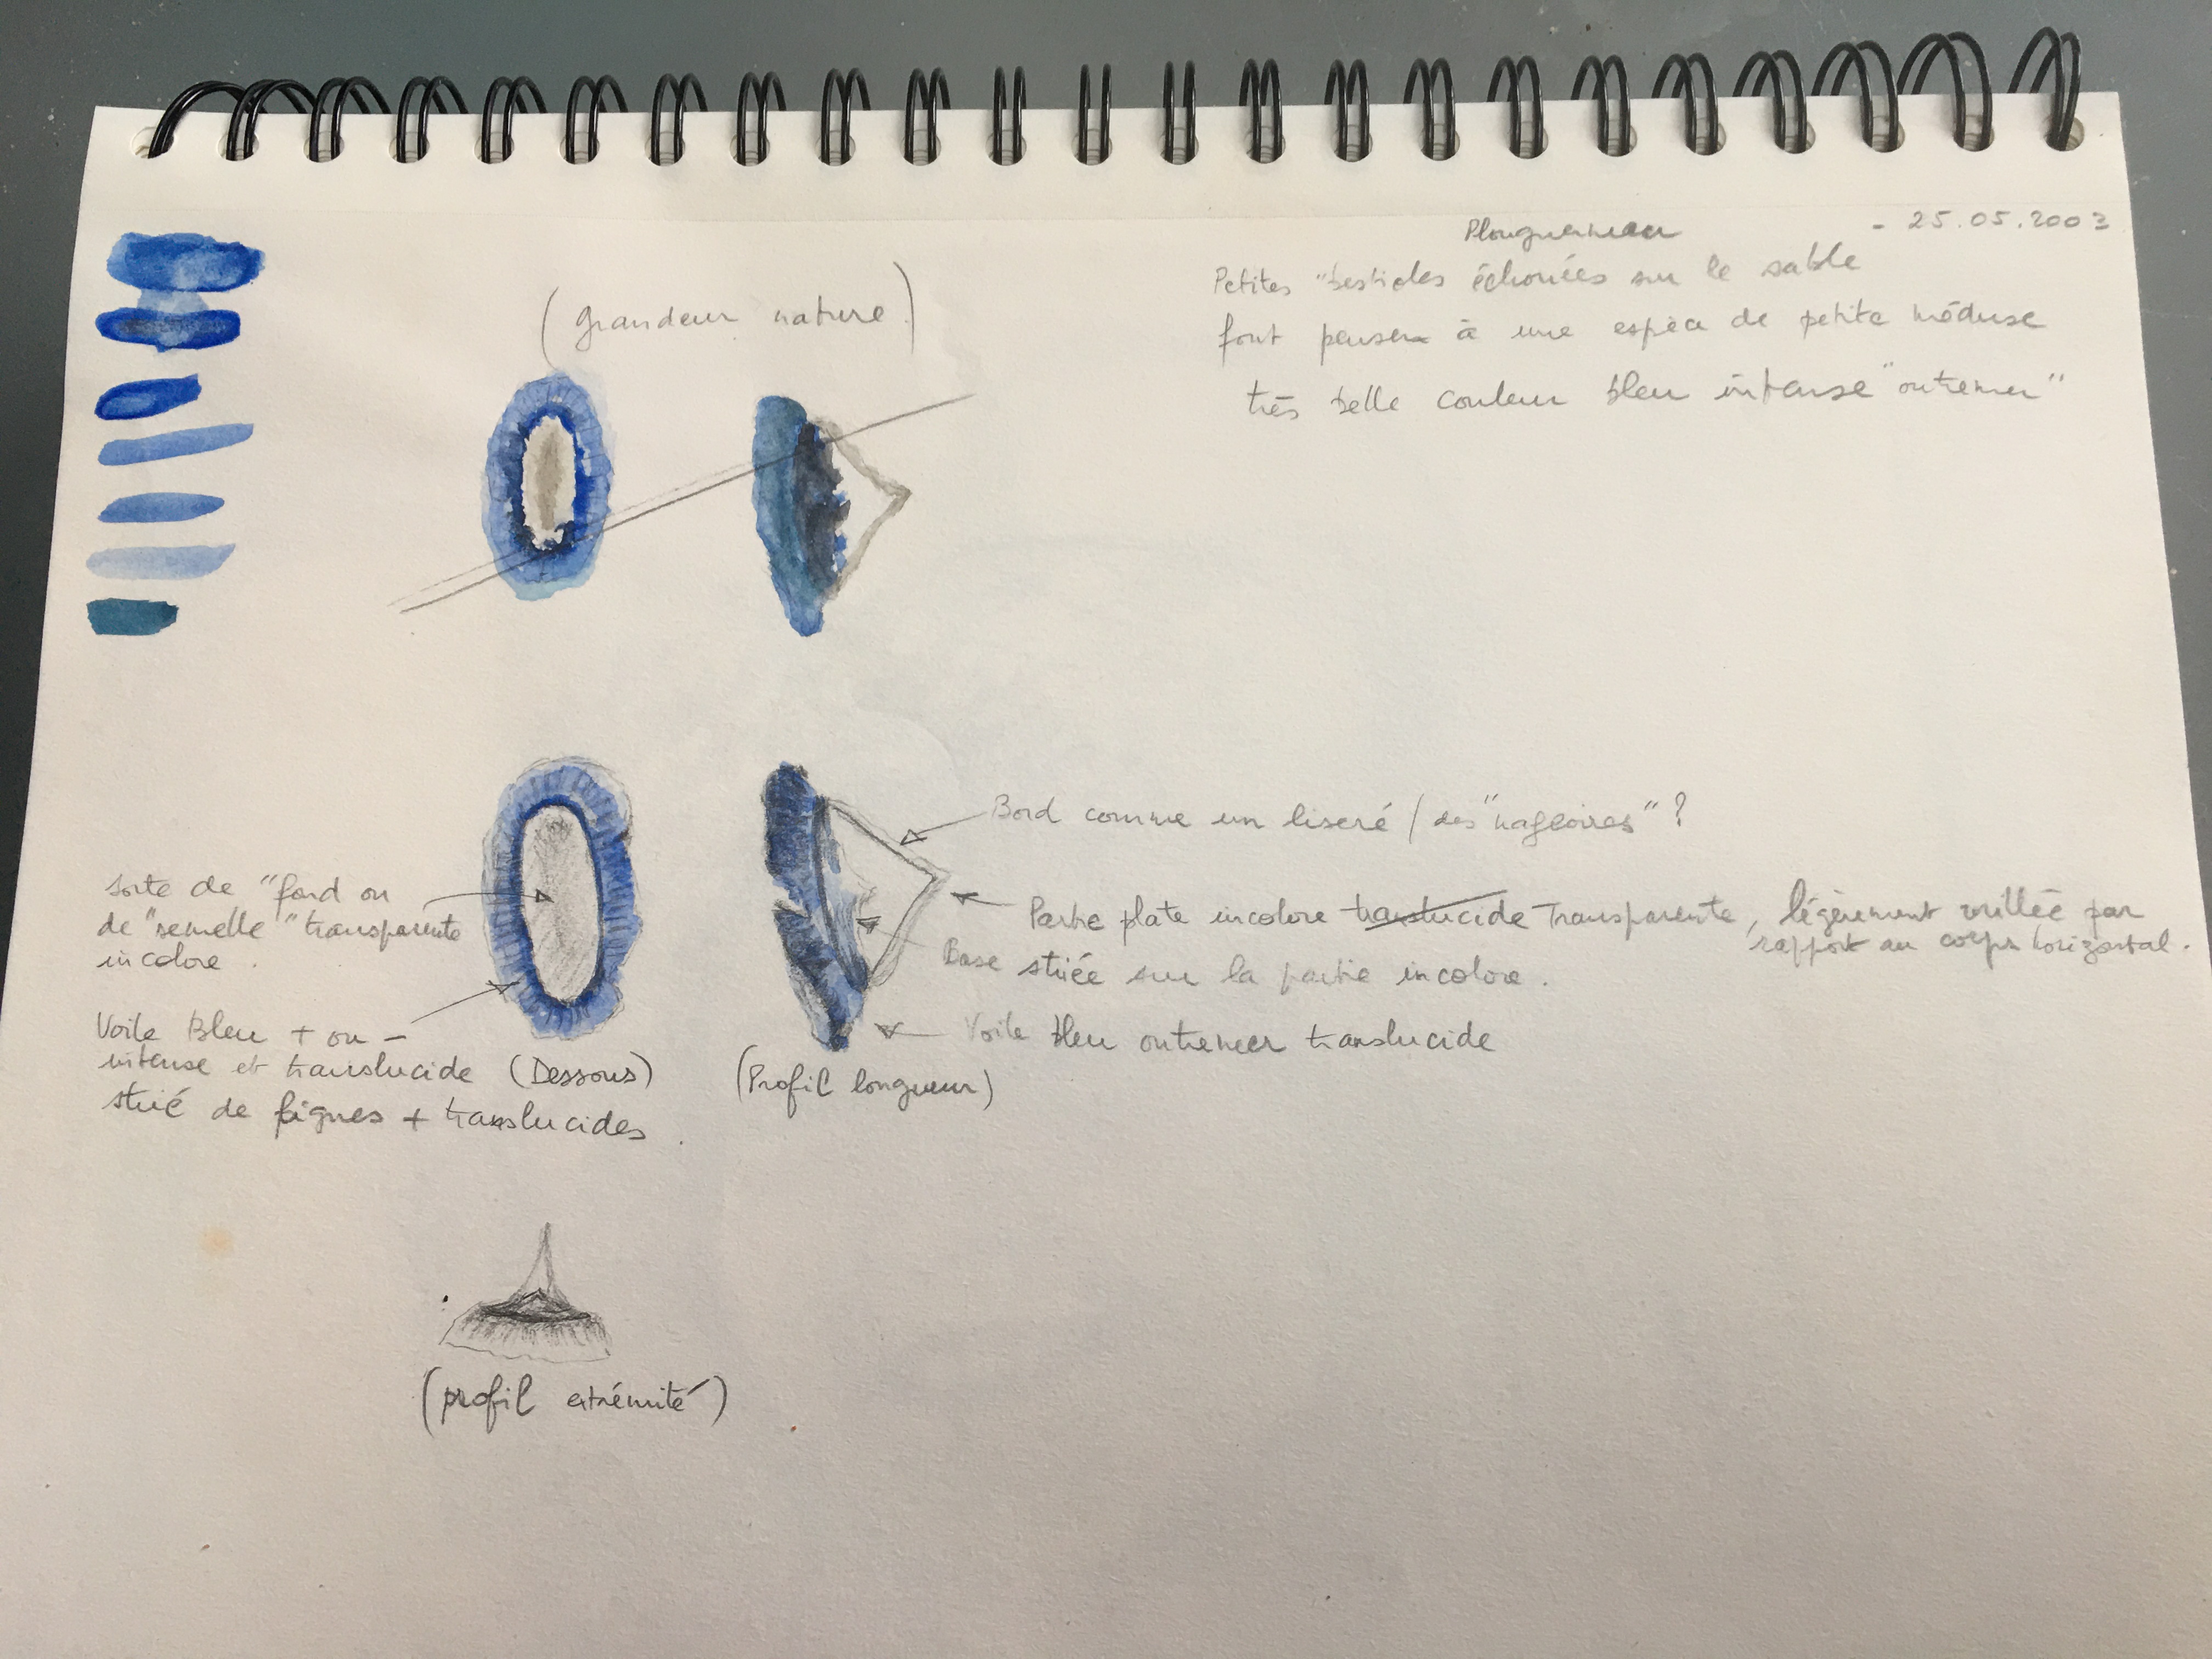 Plouguerneau - 25.05.2003
Petites "bestioles échouées sur le sable
font penser à une espèce de petite méduse
très belle couleur bleu intense "outremer"
(grandeur nature)
Bord comme un liseré / des "nageoires" ?
Partie plate incolore translucide Transparente, légèrement vrillée par
rapport au corps horizontal.
Base striée sur la partie incolore.
Voile bleu outremer translucide
(Profil longueur)
sorte de "fond ou
de "semelle" transparente
incolore.
Voile Bleu + ou -
intense et translucide (Dessous)
strié de lignes + translucides.
(profil extrémité)